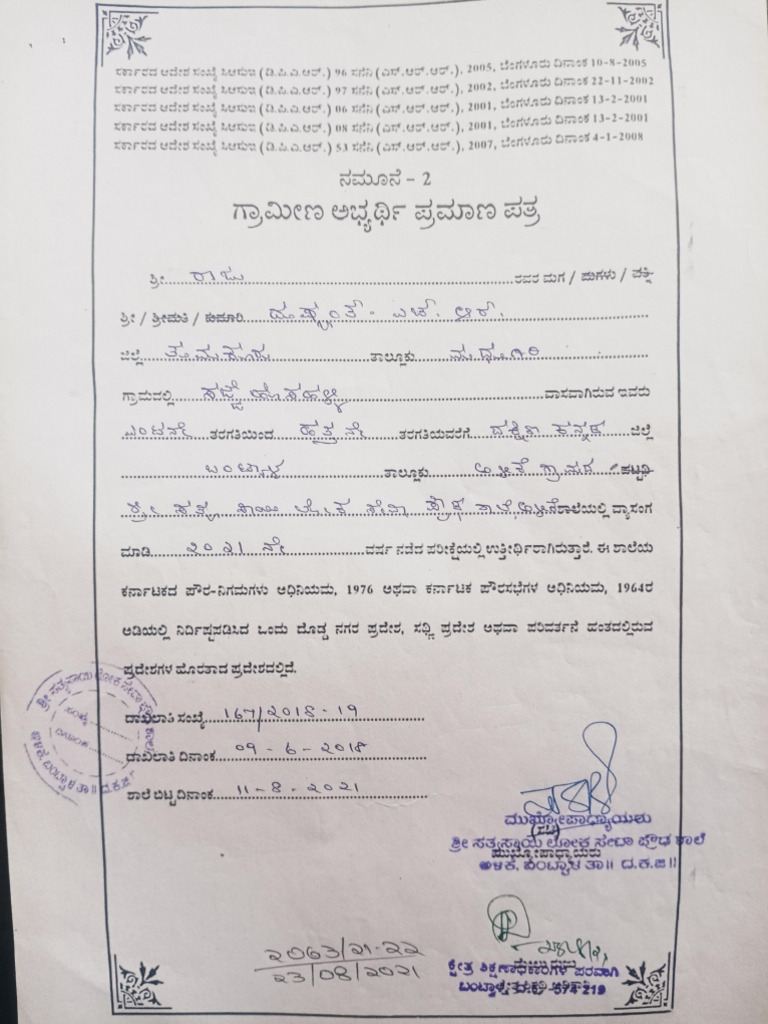 ಸರ್ಕಾರದ ಆದೇಶ ಸಂಖ್ಯೆ ಸಿಆಸುಇ (ಡಿ.ಪಿ.ಎ.ಆರ್.) 96 ಸೆನೆನಿ (ಎಸ್.ಆರ್.ಆರ್.), 2005, ಬೆಂಗಳೂರು ದಿನಾಂಕ 10-8-2005
ಸರ್ಕಾರದ ಆದೇಶ ಸಂಖ್ಯೆ ಸಿಆಸುಇ (ಡಿ.ಪಿ.ಎ.ಆರ್.) 97 ಸೆನೆನಿ (ಎಸ್.ಆರ್.ಆರ್.), 2002, ಬೆಂಗಳೂರು ದಿನಾಂಕ 22-11-2002
ಸರ್ಕಾರದ ಆದೇಶ ಸಂಖ್ಯೆ ಸಿಆಸುಇ (ಡಿ.ಪಿ.ಎ.ಆರ್.) 06 ಸೆನೆನಿ (ಎಸ್.ಆರ್.ಆರ್.), 2001, ಬೆಂಗಳೂರು ದಿನಾಂಕ 13-2-2001
ಸರ್ಕಾರದ ಆದೇಶ ಸಂಖ್ಯೆ ಸಿಆಸುಇ (ಡಿ.ಪಿ.ಎ.ಆರ್.) 08 ಸೆನೆನಿ (ಎಸ್.ಆರ್.ಆರ್.), 2001, ಬೆಂಗಳೂರು ದಿನಾಂಕ 13-2-2001
ಸರ್ಕಾರದ ಆದೇಶ ಸಂಖ್ಯೆ ಸಿಆಸುಇ (ಡಿ.ಪಿ.ಎ.ಆರ್.) 53 ಸೆನೆನಿ (ಎಸ್.ಆರ್.ಆರ್.), 2007, ಬೆಂಗಳೂರು ದಿನಾಂಕ 4-1-2008
ನಮೂನೆ - 2
ಗ್ರಾಮೀಣ ಅಭ್ಯರ್ಥಿ ಪ್ರಮಾಣ ಪತ್ರ
ಶ್ರೀ ರಾಜು ರವರ ಮಗ / ಮಗಳು / ಪತ್ನಿ
ಶ್ರೀ / ಶ್ರೀಮತಿ / ಕುಮಾರಿ ದುಷ್ಯಂತ. ಎಚ್. ಆರ್.
ಜಿಲ್ಲೆ ತುಮಕೂರು ತಾಲ್ಲೂಕು ಮಧುಗಿರಿ
ಗ್ರಾಮದಲ್ಲಿ ವಾಸವಾಗಿರುವ ಇವರು
ಎಂಟನೇ ತರಗತಿಯಿಂದ ಹತ್ತನೇ ತರಗತಿಯವರೆಗೆ ದಕ್ಷಿಣ ಕನ್ನಡ ಜಿಲ್ಲೆ
ಬಂಟ್ವಾಳ ತಾಲ್ಲೂಕು ಅಳಿಕೆ ಗ್ರಾಮದ ಪಟ್ಟಣ
ಶ್ರೀ ಸತ್ಯ ಸಾಯಿ ಲೋಕ ಸೇವಾ ಪ್ರೌಢ ಶಾಲೆ, ಅಳಿಕೆ ಶಾಲೆಯಲ್ಲಿ ವ್ಯಾಸಂಗ
ಮಾಡಿ ೨೦೨೧ ನೇ ವರ್ಷ ನಡೆದ ಪರೀಕ್ಷೆಯಲ್ಲಿ ಉತ್ತೀರ್ಣರಾಗಿರುತ್ತಾರೆ. ಈ ಶಾಲೆಯು
ಕರ್ನಾಟಕದ ಪೌರ-ನಿಗಮಗಳು ಅಧಿನಿಯಮ, 1976 ಅಥವಾ ಕರ್ನಾಟಕ ಪೌರಸಭೆಗಳ ಅಧಿನಿಯಮ, 1964ರ
ಅಡಿಯಲ್ಲಿ ನಿರ್ದಿಷ್ಟಪಡಿಸಿದ ಒಂದು ದೊಡ್ಡ ನಗರ ಪ್ರದೇಶ, ಸಣ್ಣ ಪ್ರದೇಶ ಅಥವಾ ಪರಿವರ್ತನೆ ಹಂತದಲ್ಲಿರುವ
ಪ್ರದೇಶಗಳ ಹೊರತಾದ ಪ್ರದೇಶದಲ್ಲಿದೆ.
ದಾಖಲಾತಿ ಸಂಖ್ಯೆ 167/2018-19
ದಾಖಲಾತಿ ದಿನಾಂಕ 09-6-2018
ಶಾಲೆ ಬಿಟ್ಟ ದಿನಾಂಕ 11-8-2021
ಮುಖ್ಯೋಪಾಧ್ಯಾಯರು
(ಸಹಿ)
ಶ್ರೀ ಸತ್ಯಸಾಯಿ ಲೋಕ ಸೇವಾ ಪ್ರೌಢ ಶಾಲೆ
ಮುಖ್ಯೋಪಾಧ್ಯಾಯರು
ಅಳಿಕೆ, ಬಂಟ್ವಾಳ ತಾ॥ ದ.ಕ.ಜಿ॥
2063/21-22
23/08/2021
ಕ್ಷೇತ್ರ ಶಿಕ್ಷಣಾಧಿಕಾರಿಗಳ ಪರವಾಗಿ
ಬಂಟ್ವಾಳ, ದ.ಕ. 574 219